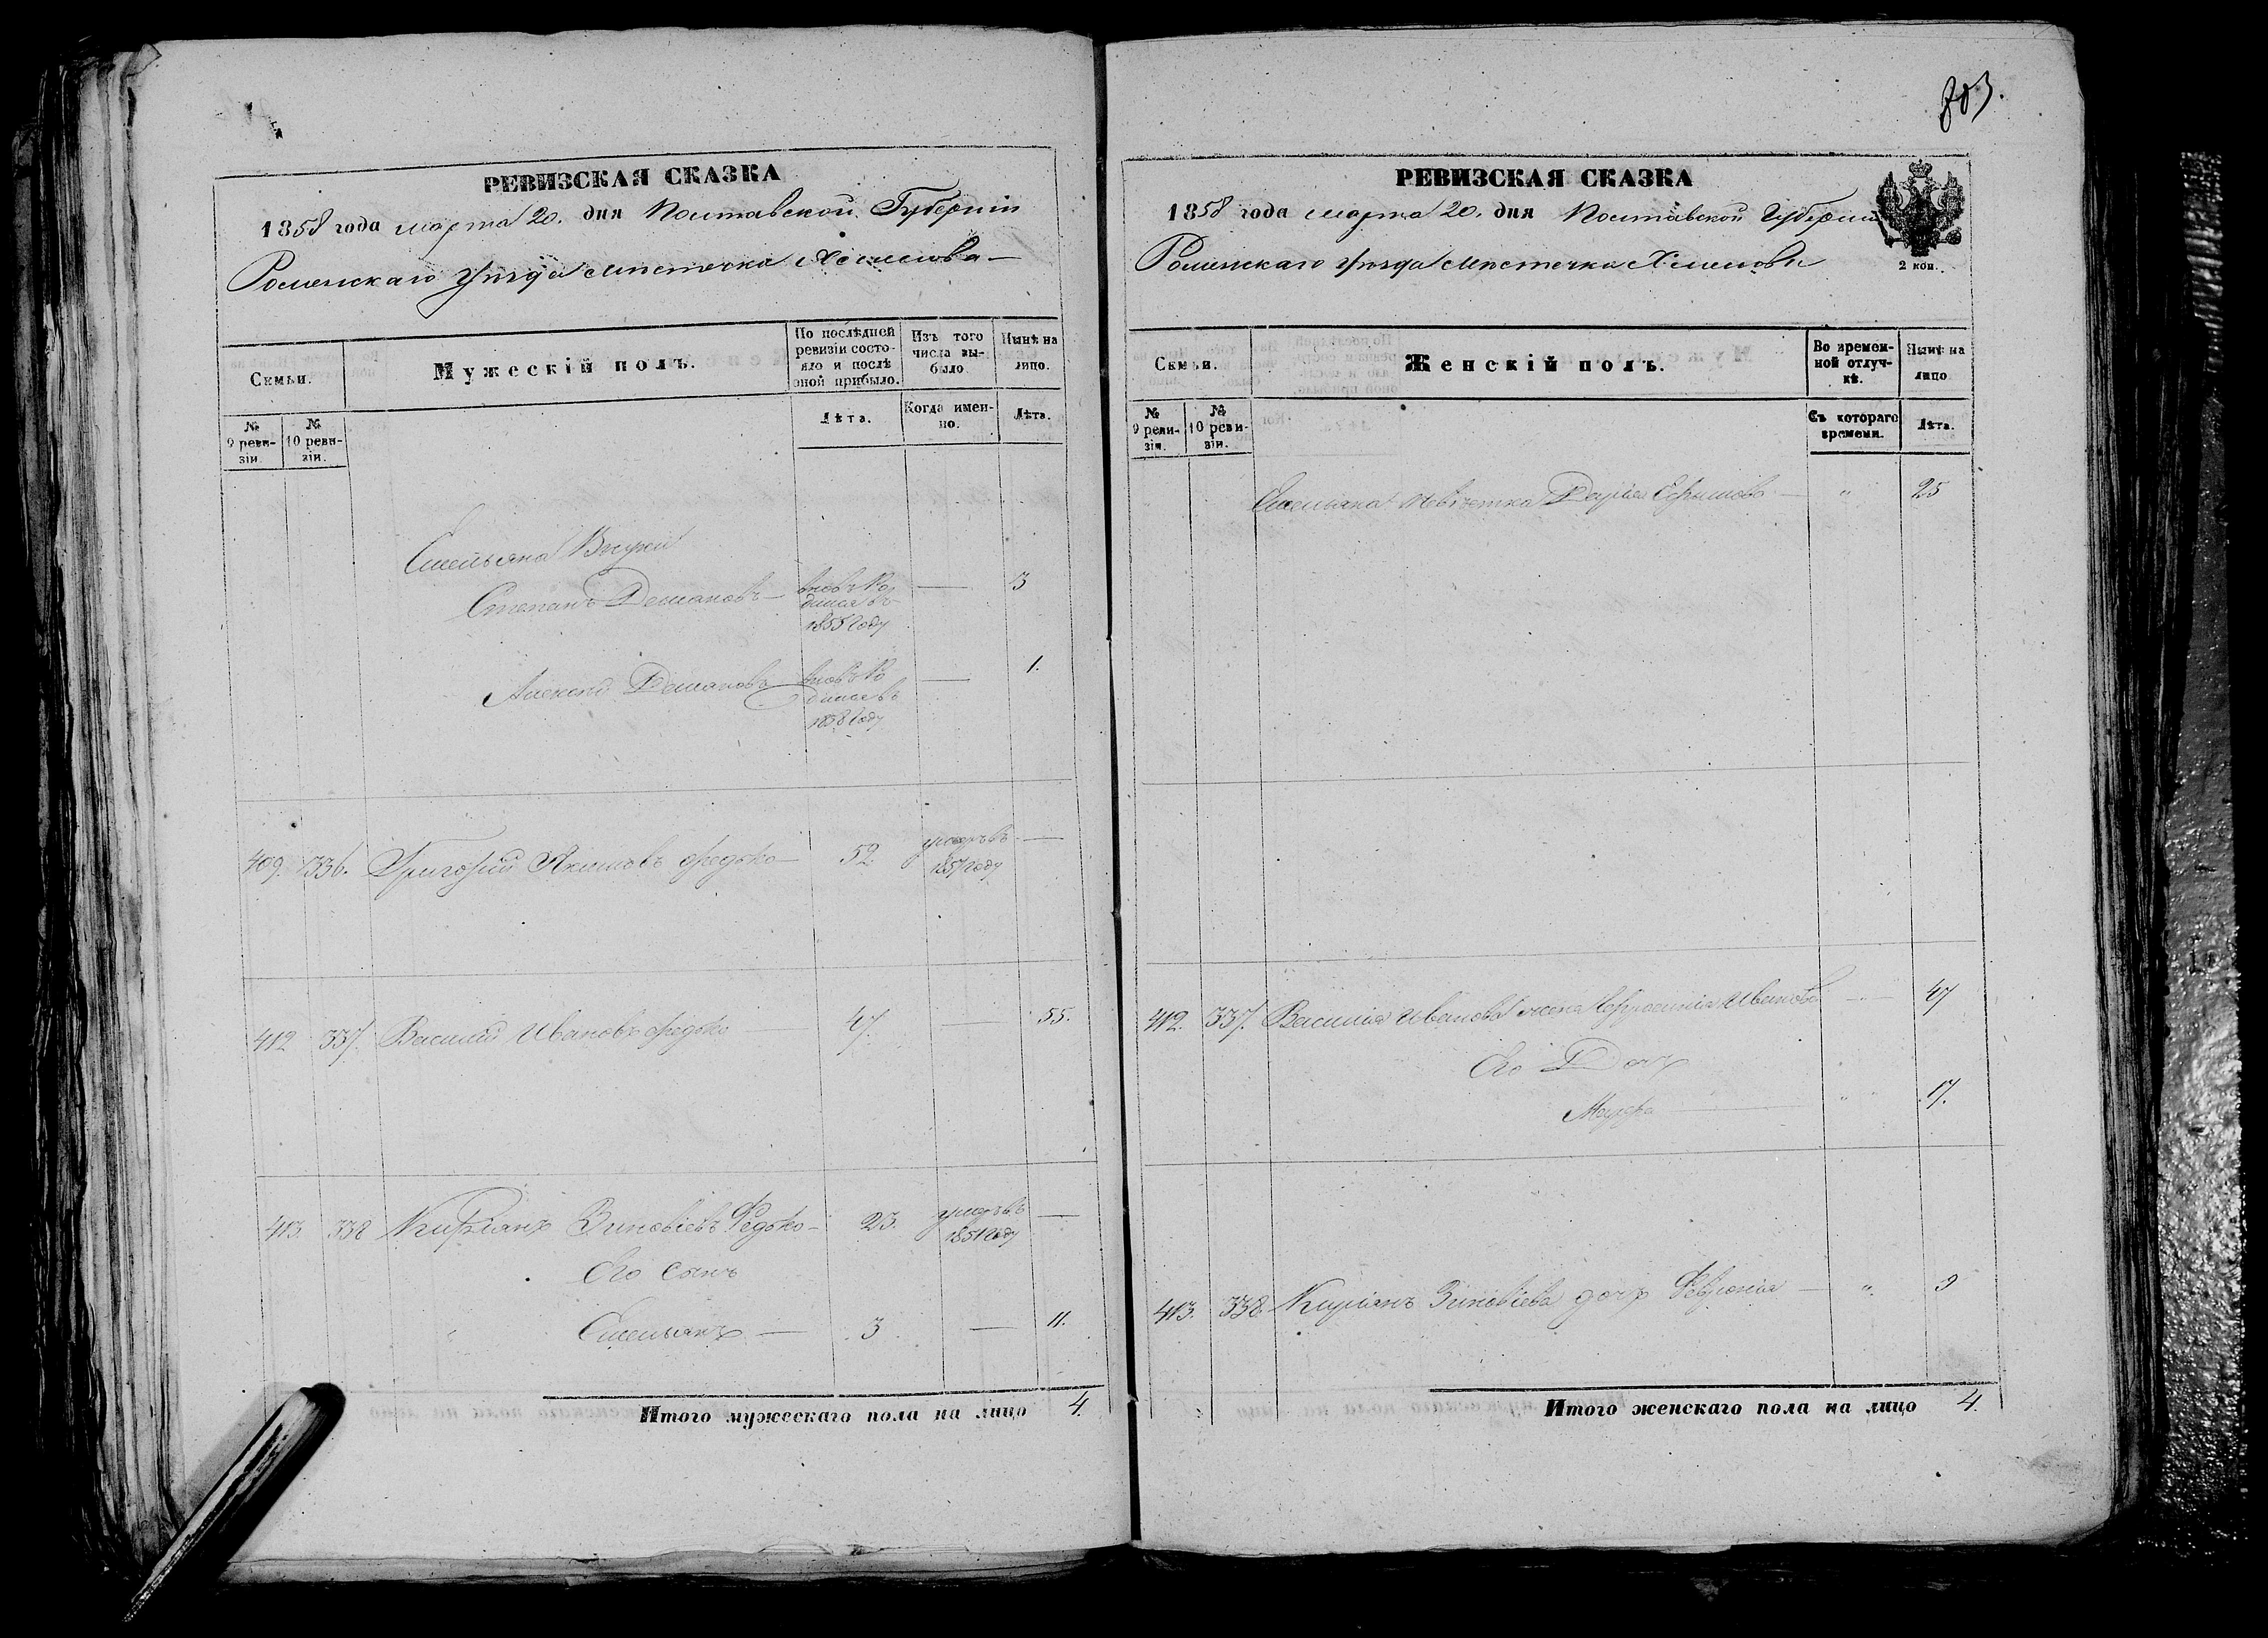 РЕВИЗСКАЯ СКАЗКА
1858 года марта 20. дня Полтавской Губерніи
Роменскаго уѣзда мѣстечка Хмелова
Семьи.
Мужескій полъ.
По послѣдней ревизіи состояло и послѣ оной прибыло.
Изъ того числа выбыло
Нынѣ на лицо.
№ 9 ревизіи.
№ 10 ревизіи.
Лѣта.
Когда именно.
Лѣта.
Емельяна Внуки
Степанъ Демановъ — вновь родился въ 1855 году — 3
Алексѣй Демановъ — вновь родился въ 1858 году — 1.
409. 336. Григорій Якимовъ Федько — 52 умеръ въ 1857 году —
412 337. Василій Ивановъ Федько 47. — 55.
413. 338 Кирьянъ Зиновіевъ Федько — 23. умеръ въ 1851 году —
Его сынъ
" Емельянъ — 3. — 11.
Итого мужескаго пола на лицо 4.
803.
РЕВИЗСКАЯ СКАЗКА
1858 года марта 20. дня Полтавской Губерніи
Роменскаго уѣзда мѣстечка Хмелова
2 коп.
Семьи.
Женскій полъ.
Во временной отлучкѣ.
Нынѣ на лицо
№ 9 ревизіи.
№ 10 ревизіи.
Съ котораго времени.
Лѣта.
Емельяна невѣстка Дарья Ефимова — " 25
412. 337. Василія Иванова жена Ивановa — " — 47
Его Дочь
Марфа — " " 17.
413. 338. Киріянъ Зиновіева дочь Февронія — ". 9
Итого женскаго пола на лицо 4.